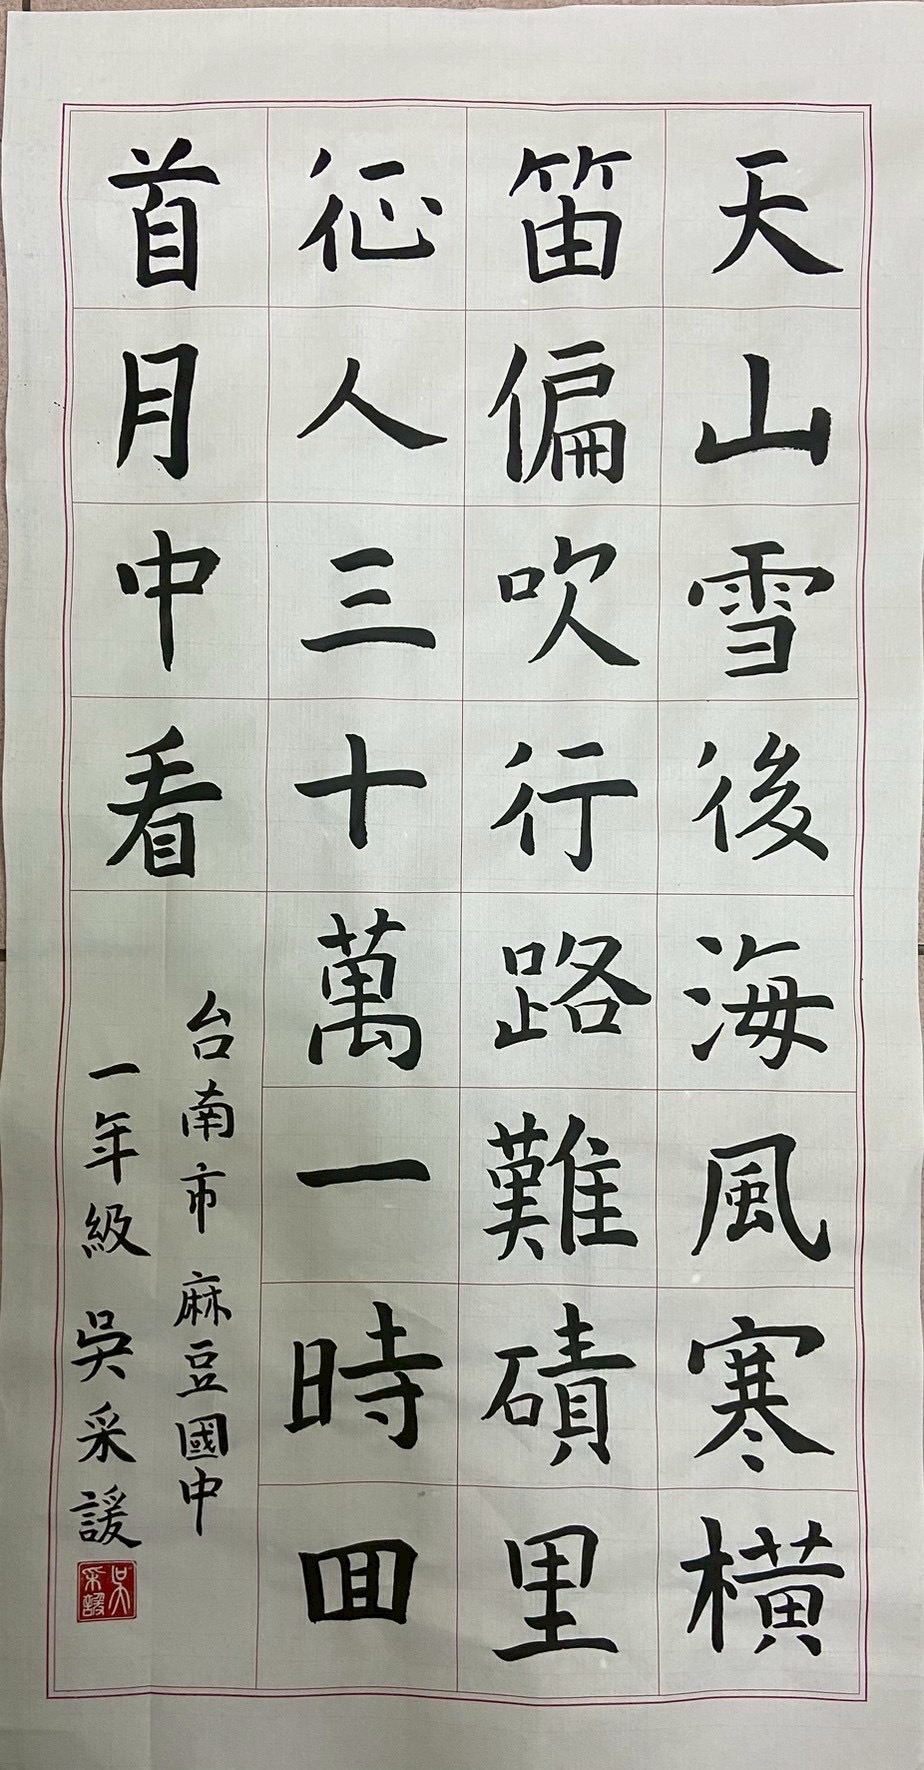 天山雪後海風寒橫
笛偏吹行路難磧里
征人三十萬一時回
首月中看
台南市麻豆國中
一年級吳采諼
吳采諼